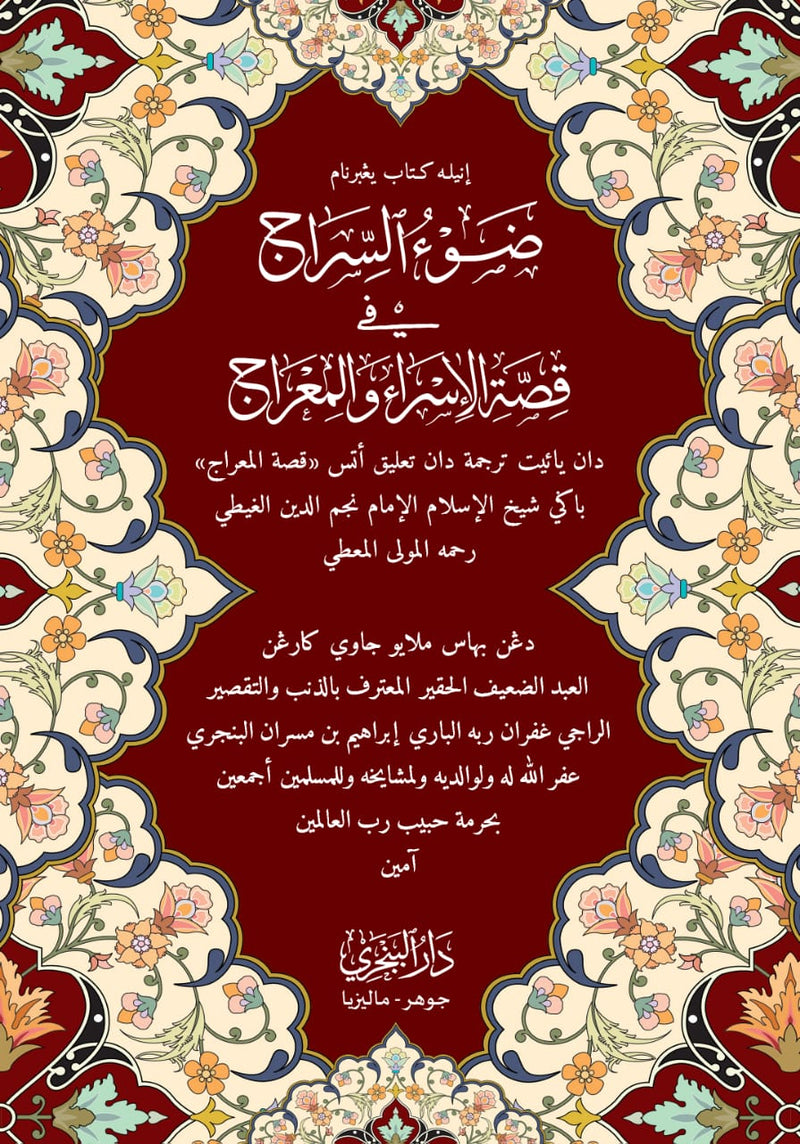 إنيله كتاب يڠبرنام
ضَوْءُ ٱلسِّرَاج
فِي
قِصَّةِ الْإِسْرَاءِ وَالْمِعْرَاج
دان يائيت ترجمة دان تعليق أتس «قصة المعراج»
باڬي شيخ الإسلام الإمام نجم الدين الغيطي
رحمه المولى المعطي
دڠن بهاس ملايو جاوي كارڠن
العبد الضعيف الحقير المعترف بالذنب والتقصير
الراجي غفران ربه الباري إبراهيم بن مسران البنجري
عفر الله له ولوالديه ولمشايخه وللمسلمين أجمعين
بحرمة حبيب رب العالمين
آمين
دَارُ ٱلْبَنْجَرِي
جوهر - ماليزيا